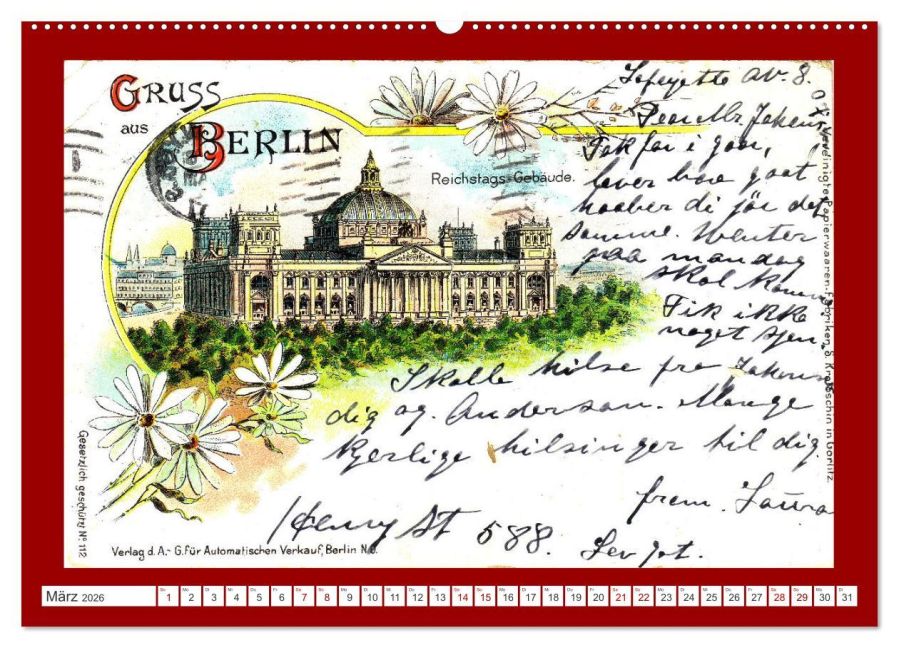 GRUSS
aus
BERLIN
Reichstags-Gebäude.
Lafeyette av. 8.
Dear Mr
Tak for i gaar,
lever bare goat
haaber di jör det
samme. Wenter
paa mandag
skal komme
Fik ikke
noget
Skalle hilse fra
dig og. Anderson. Mange
kjerlige hilsinger til dig.
from. Laura
Henry St 588.
Vereinigte Papierwaaren-Fabriken S. Krotoschin in Görlitz.
Gesetzlich geschützt No 112
Verlag d. A.-G. für Automatischen Verkauf, Berlin N.O.
März 2026
So Mo Di Mi Do Fr Sa So Mo Di Mi Do Fr Sa So Mo Di Mi Do Fr Sa So Mo Di Mi Do Fr Sa So Mo Di
1 2 3 4 5 6 7 8 9 10 11 12 13 14 15 16 17 18 19 20 21 22 23 24 25 26 27 28 29 30 31